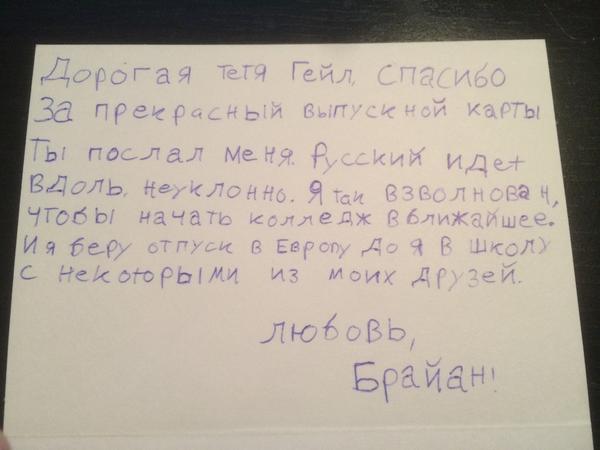 Дорогая тетя Гейл, спасибо
За прекрасный выпускной карты
Ты послал меня. Русский идет
вдоль, неуклонно. Я так взволнован,
чтобы начать колледж в ближайшее.
И я беру отпуск в Европу до я в школу
с некоторыми из моих друзей.
любовь,
Брайан!